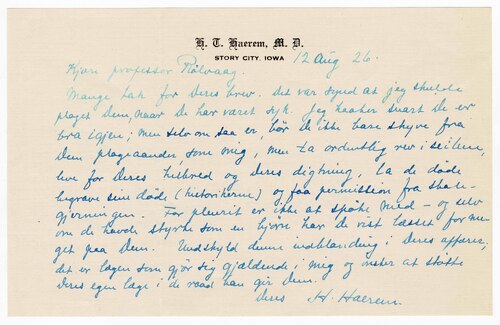 H. T. Haerem, M. D.
STORY CITY, IOWA
12 Aug 26.
Kjære professor Rölvaag.
Mange tak for Deres brev. Det var synd at jeg skulde
plaget Dem, naar De har været syk. Jeg haaber snart De er
bra igjen; men selv om saa er, bör De ikke bare skyve fra
Dem plageaander som mig, men ta ordentlig rev i seilene,
leve for Deres helbred og Deres digtning, la de döde
begrave sine döde (historikerne) og faa permission fra skole-
gjerningen. For pleurit er ikke at spöke med – og selv
om De havde styrke som en björn har De vist læsset for me-
get paa Dem. Undskyld denne indblanding i Deres affærer,
det er lægen som gjör sig gjældende i mig og önsker at stötte
Deres egen læge i de raad han gir Dem.
Deres H. Haerem.